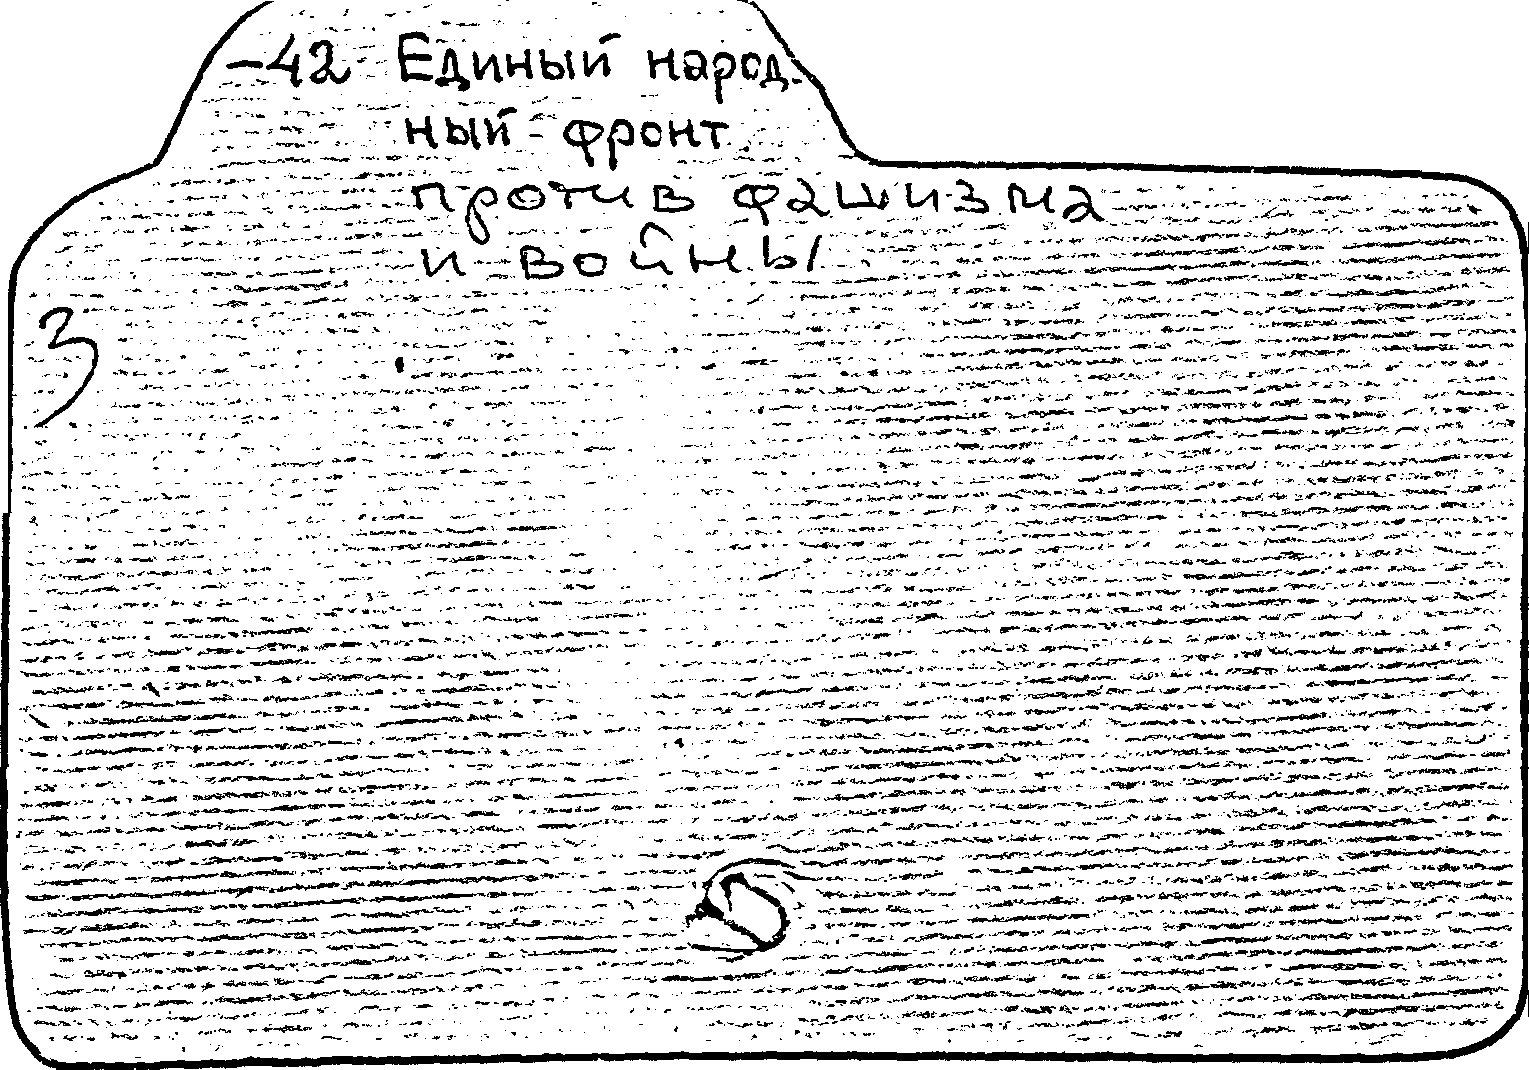 -42 Единый народ-
ный фронт
против фашизма
и войны
3